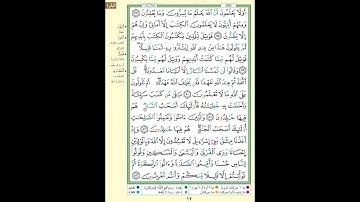 أَوَلَا يَعْلَمُونَ أَنَّ ٱللَّهَ يَعْلَمُ مَا يُسِرُّونَ وَمَا يُعْلِنُونَ ٧٧
وَمِنْهُمْ أُمِّيُّونَ لَا يَعْلَمُونَ ٱلْكِتَٰبَ إِلَّآ أَمَانِيَّ وَإِنْ هُمْ
إِلَّا يَظُنُّونَ ٧٨ فَوَيْلٌ لِّلَّذِينَ يَكْتُبُونَ ٱلْكِتَٰبَ بِأَيْدِيهِمْ
ثُمَّ يَقُولُونَ هَٰذَا مِنْ عِندِ ٱللَّهِ لِيَشْتَرُوا۟ بِهِۦ ثَمَنًا قَلِيلًا
فَوَيْلٌ لَّهُم مِّمَّا كَتَبَتْ أَيْدِيهِمْ وَوَيْلٌ لَّهُم مِّمَّا
يَكْسِبُونَ ٧٩ وَقَالُوا۟ لَن تَمَسَّنَا ٱلنَّارُ إِلَّآ أَيَّامًا مَّعْدُودَةً
قُلْ أَتَّخَذْتُمْ عِندَ ٱللَّهِ عَهْدًا فَلَن يُخْلِفَ ٱللَّهُ عَهْدَهُۥٓ أَمْ تَقُولُونَ
عَلَى ٱللَّهِ مَا لَا تَعْلَمُونَ ٨٠ بَلَىٰ مَن كَسَبَ سَيِّئَةً
وَأَحَٰطَتْ بِهِۦ خَطِيٓـَٔتُهُۥ فَأُو۟لَٰٓئِكَ أَصْحَٰبُ ٱلنَّارِ هُمْ
فِيهَا خَٰلِدُونَ ٨١ وَٱلَّذِينَ ءَامَنُوا۟ وَعَمِلُوا۟ ٱلصَّٰلِحَٰتِ
أُو۟لَٰٓئِكَ أَصْحَٰبُ ٱلْجَنَّةِ هُمْ فِيهَا خَٰلِدُونَ ٨٢ وَإِذْ
أَخَذْنَا مِيثَٰقَ بَنِىٓ إِسْرَٰٓءِيلَ لَا تَعْبُدُونَ إِلَّا ٱللَّهَ وَبِٱلْوَٰلِدَيْنِ
إِحْسَانًا وَذِى ٱلْقُرْبَىٰ وَٱلْيَتَٰمَىٰ وَٱلْمَسَٰكِينِ وَقُولُوا۟
لِلنَّاسِ حُسْنًا وَأَقِيمُوا۟ ٱلصَّلَوٰةَ وَءَاتُوا۟ ٱلزَّكَوٰةَ ثُمَّ
تَوَلَّيْتُمْ إِلَّا قَلِيلًا مِّنكُمْ وَأَنتُم مُّعْرِضُونَ ٨٣
١٢